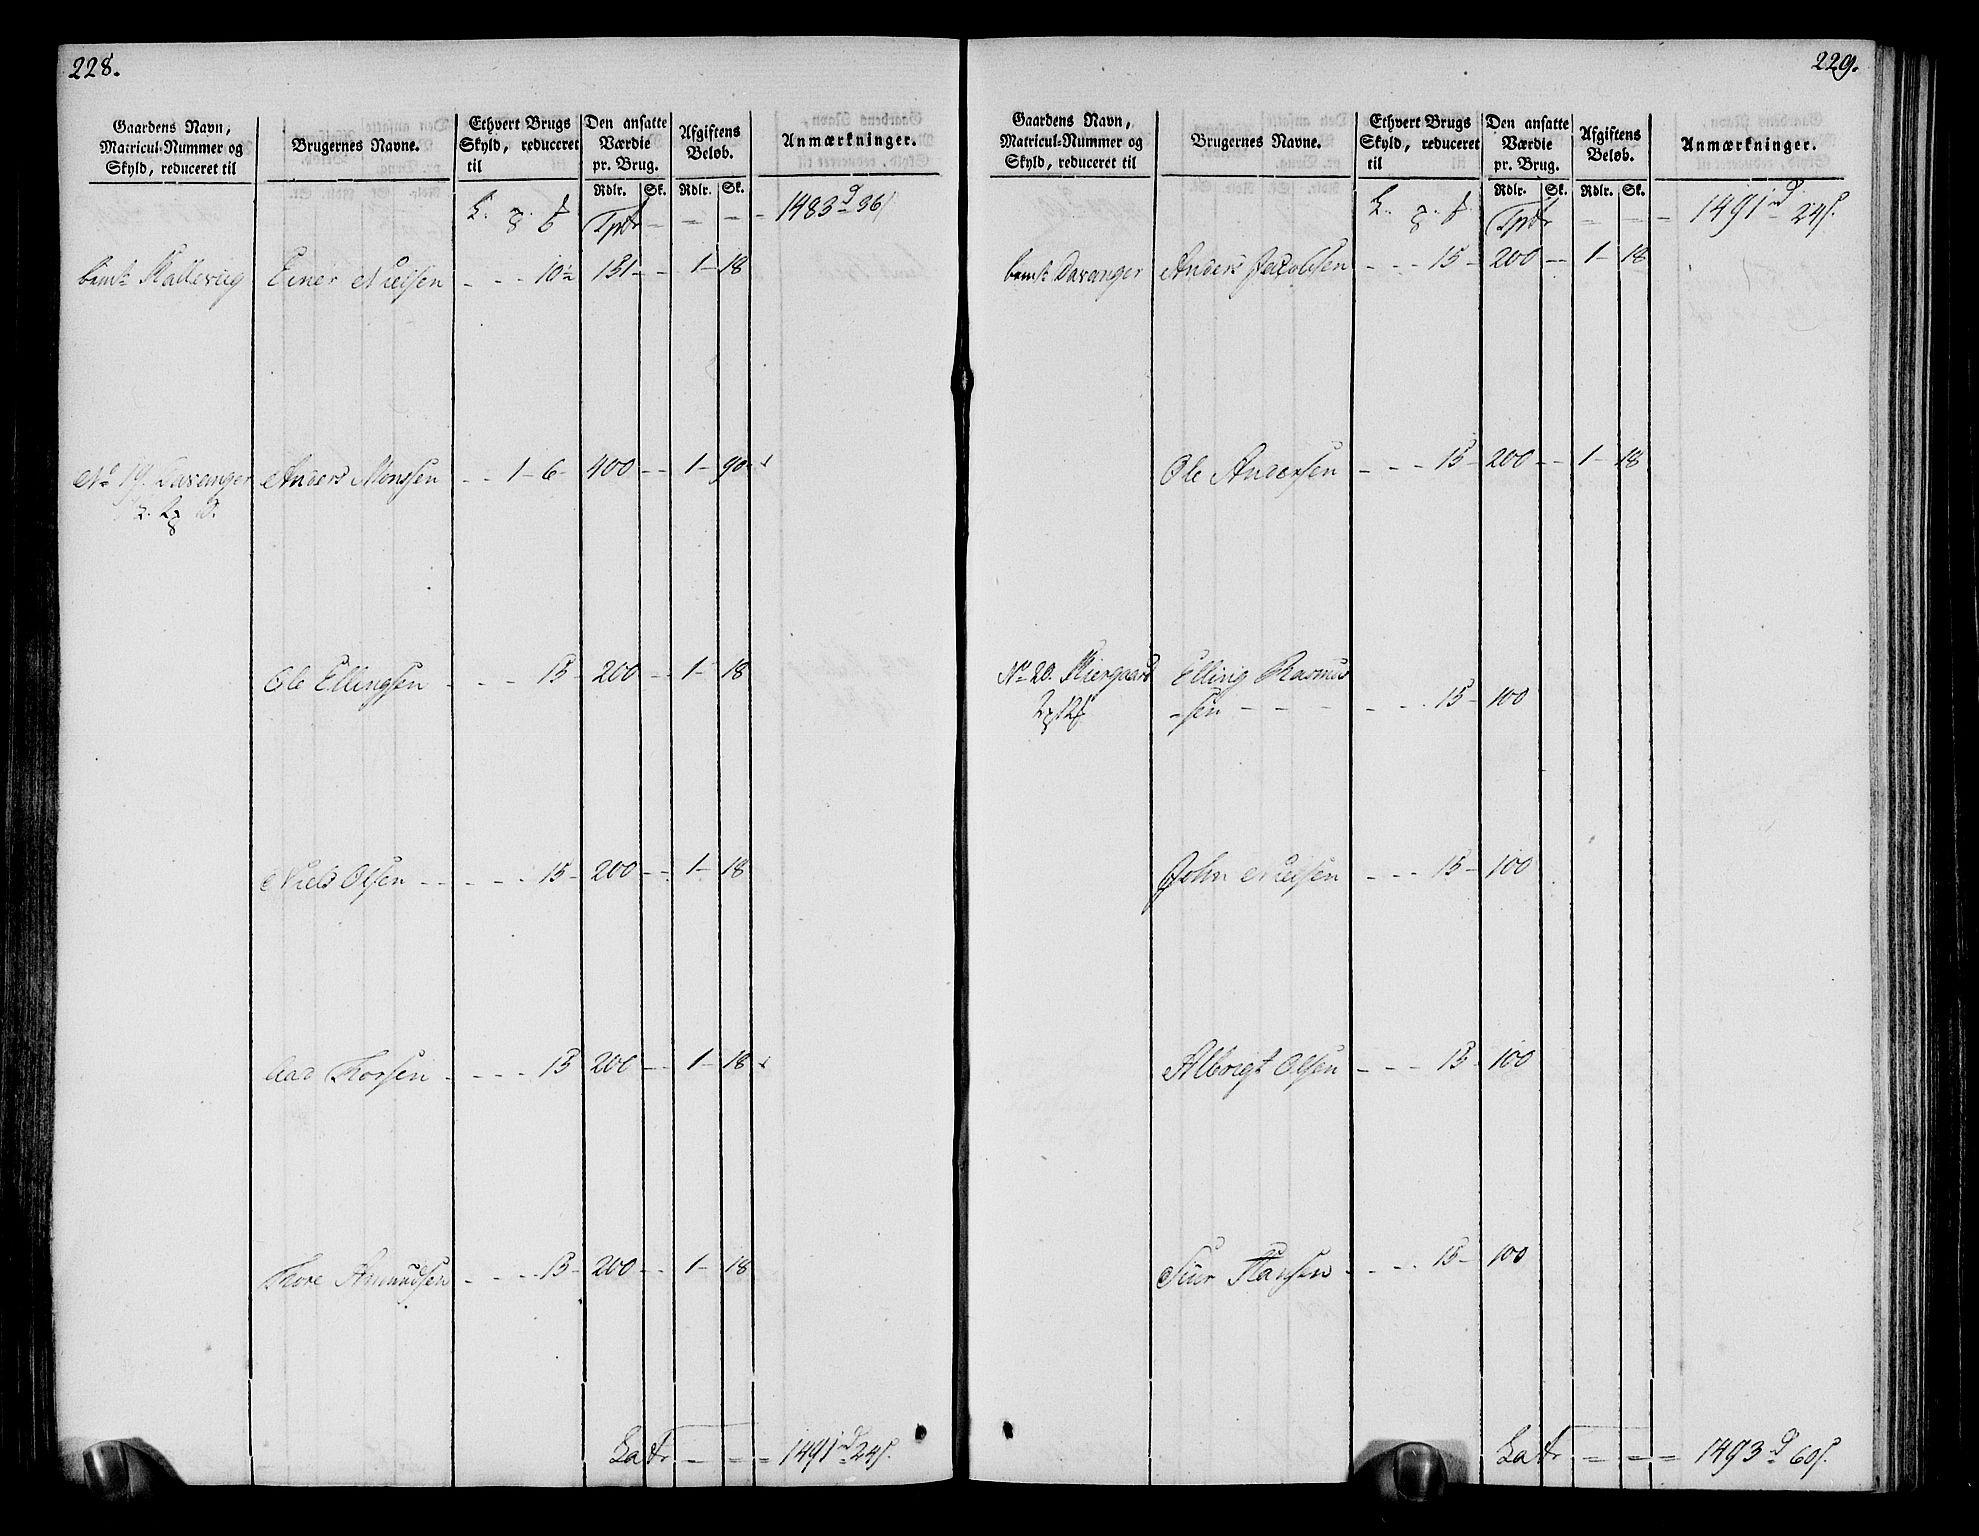 228.
Gaardens Navn, Matricul-Nummer og Skyld, reduceret til
Brugernes Navne.
Ethvert Brugs Skyld, reduceret til
Den ansatte Værdie pr. Brug.
Afgiftens Beløb.
Anmærkninger.
Rdlr. Sk. Rdlr. Sk.
Tptr - - - 1483 d 36 s
Einer Nielsen - - - 10½ 131 - - 1 - 18
No 19. Davanger Anders Monsen - - 1 - 6 - 400 - - 1 - 90
Ole Ellingsen - - - 15 - 200 - - 1 - 18
Niels Olsen - - - - 15 - 200 - - 1 - 18
Aad Thorsen - - - - 15 200 - - 1 - 18
Thore Amundsen - - - - 15 - 200 - - 1 - 18
Latr - - - 1491 d 24 s.
229.
Gaardens Navn, Matricul-Nummer og Skyld, reduceret til
Brugernes Navne.
Ethvert Brugs Skyld, reduceret til
Den ansatte Værdie pr. Brug.
Afgiftens Beløb.
Anmærkninger.
Rdlr. Sk. Rdlr. Sk.
Tptr - - - 1491 d 24 s.
Davanger Anders Jacobsen - - - 15 - 200 - - 1 - 18
Ole Andersen - - - 15 - 200 - - 1 - 18
No 20. Kiergaard Elling Rasmus
-sen - - - - - - 15 - 100
John Nielsen - - - 15 - 100
Albrigt Olsen - - - 15 - 100
Siur Hansen - - - 15 - 100
Latr - - - 1493 d 60 s.